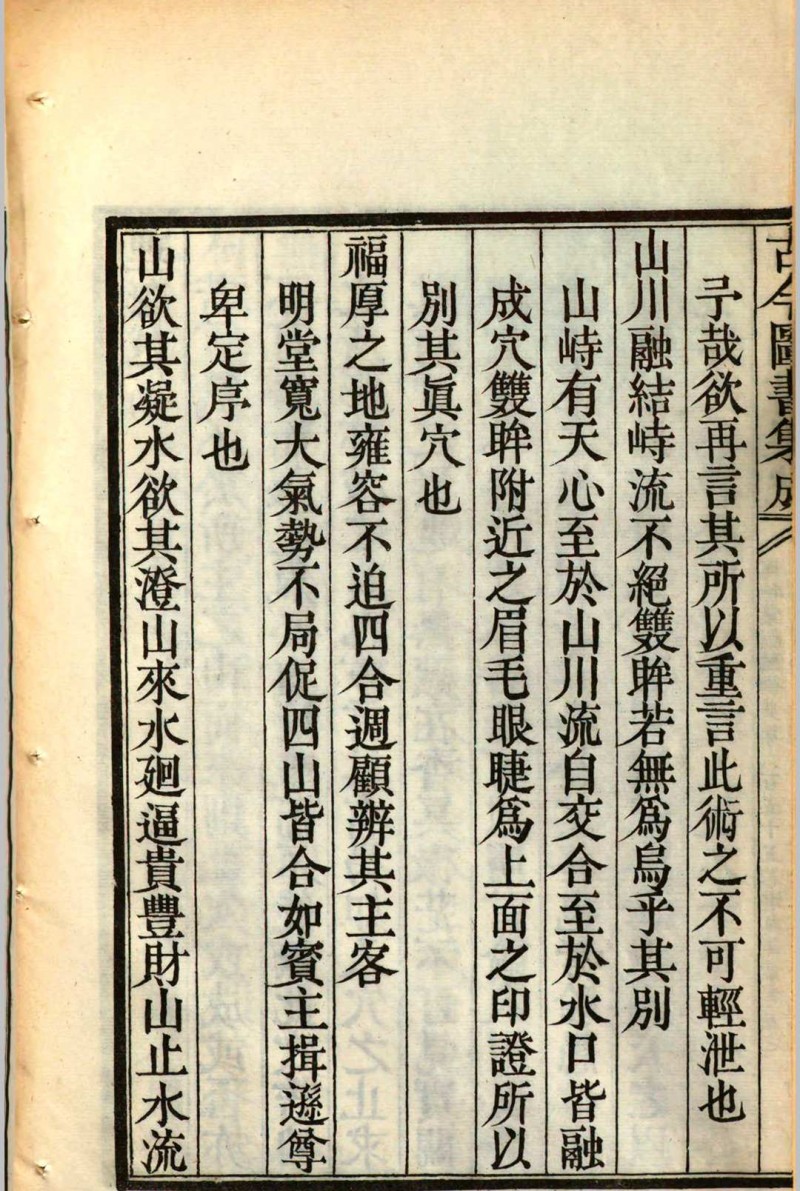 古今圖書集成
子哉欲再言其所以重言此術之不可輕泄也
山川融結峙流不絕雙眸若無爲烏乎其別
山峙有天心至於山川流自交合至於水口皆融
成穴雙眸附近之眉毛眼睫爲上面之印證所以
別其眞穴也
福厚之地雍容不迫四合週顧辨其主客
明堂寬大氣勢不局促四山皆合如賓主揖遜尊
卑定序也
山欲其凝水欲其澄山來水廻逼貴豐財山止水流